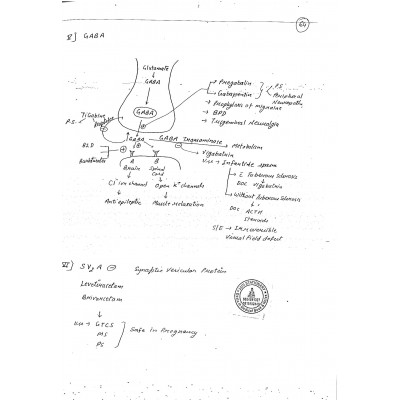 64
V] GABA
Glutamate
GABA
GABA
Pregabalin
Gabapentin
P.S.
Peripheral Neuropathy
→ Prophylaxis of migraine
→ BPD
→ Trigeminal Neuralgia
P.S. ← Tigabine
GABA
GABA Transaminase → Metabolism
Vigabatrin
BZD
Barbiturates
A
Brain
B
Spinal Cord
Cl⁻ ion channel
Open K⁺ channels
Antiepileptic
Muscle relaxation
Use → Infantile spasm
→ c̄ Tuberous Sclerosis
DOC → Vigabatrin
→ Without Tuberous Sclerosis
DOC
ACTH
Steroids
S/E → Irreversible
Visual field defect
VI] SV₂A ⊖ Synaptic Vesicular Protein
Levetiracetam
Brivaracetam
Use → GTCS
MS
PS
Safe in Pregnancy